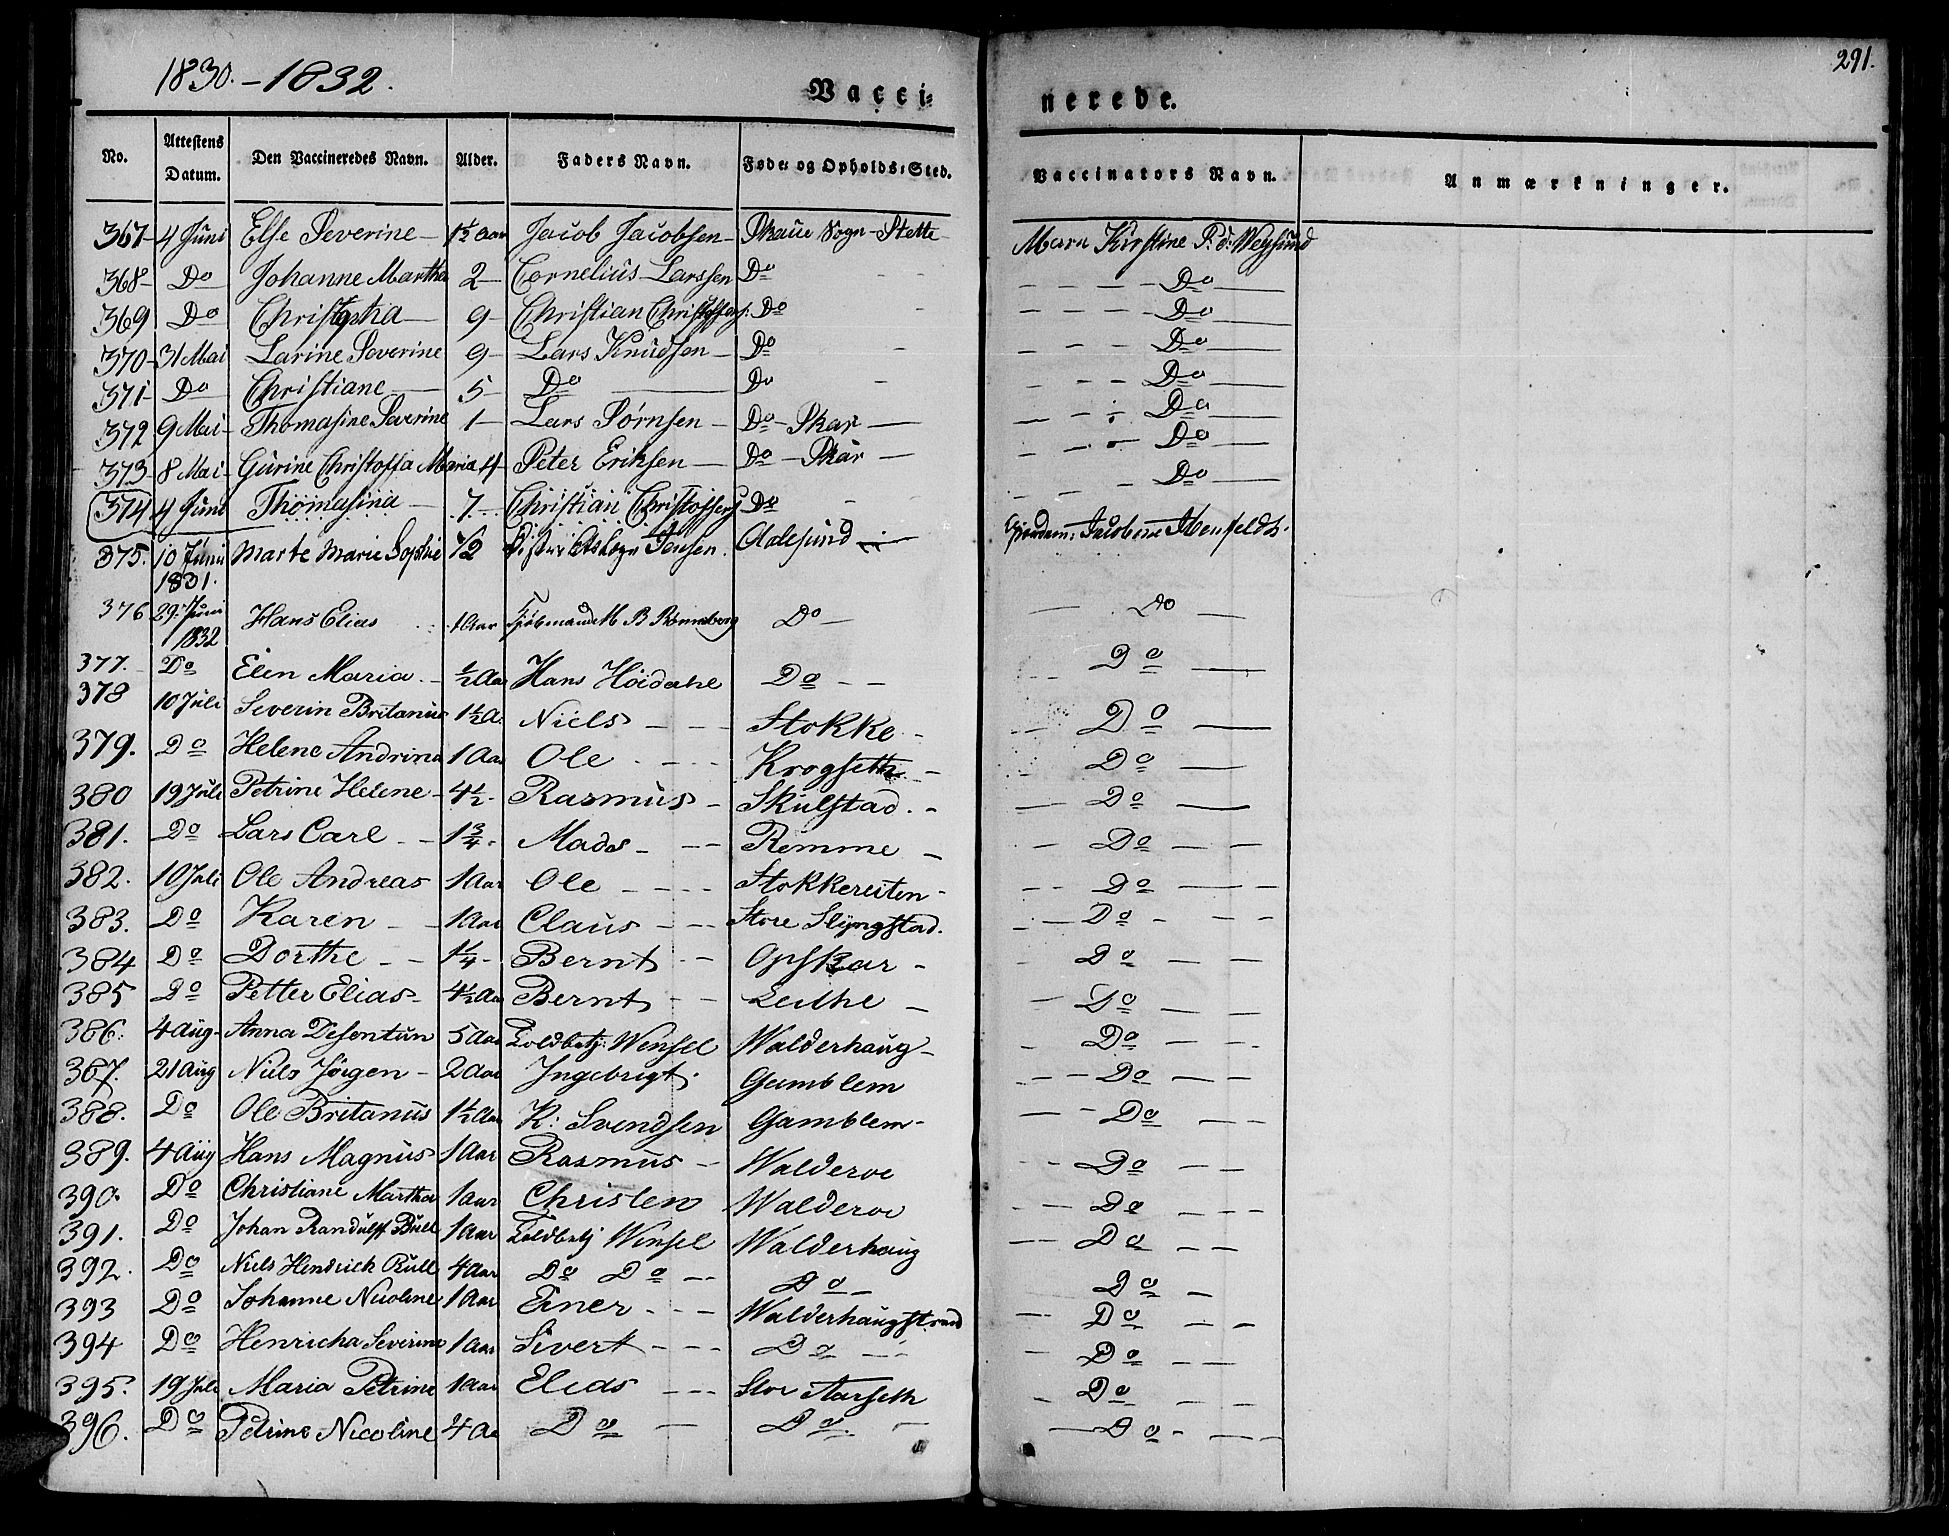 1830.-1832.
Vacci=
nerede.
291.
No. Attestens Datum. Den Vaccineredes Navn. Alder. Faders Navn. Føde= og Opholds=Sted. Vaccinators Navn. Anmærkninger.
367- 4 Juni Else Severine- 1½ Aar Jacob Jacobsen- Skaue Sogn-Stette Maren Kirstine
368- Do Johanne Martha 2- Cornelius Larssen Do - - - - - Do
369 Do Christopha 9- Christian Christoffers: Do - - - - Do
370- 31 Mai Larine Severine 9- Lars Knudsen- Do - - - Do
371- Do Christiane 5- Do Do - - - Do
372 9 Mai- Thomasine Severine 1- Lars Sørnsen- Do-Skar- - - Do
373- 8 Mai- Gurine Christoffa Maria 4 Peter Eriksen- Do-Skar- - - Do
374 4 Juni Thomasina- 7- Christian Christoffers Do - - - Do
375. 10 Juni 1831. Marte Marie Sophie ½ Jensen. Aalesund Jacobine
376 29. Juni 1832 Hans Elias 1 Aar Kjøbmand M B Rønneberg Do- - Do -
377. Do Elen Maria.- ½ Aar Hans Hoidahl Do - - Do -
378 10 Juli Severin Britanus 1½ A. Niels - - - Stokke- - - Do -
379. Do Helene Andrina 1 Aar Ole - - - Krogseth- - Do -
380 19 Juli Petrine Helene- 4½- Rasmus- Skulstad.- - Do -
381. Do Lars Carl - - 1¾- Mads- - - Remme - - Do - -
382. 10 Juli Ole Andreas 1 Aar Ole - - - - Stokkereiten- - - Do - -
383. Do Karen - - 1 Aar Claus - - - Store Slyngstad. - Do - - -
384 Do Dorthe - - 1¼- Bernt - - Opskar - - Do - -
385 Do Petter Elias- 4½ Aar Bernt - - Leithe - - Do - -
386: 4 Aug- Anna Desentun 5 Aar Toldbetj: Wensel Walderhaug- - Do - -
387. 21 Aug Niels Jörgen - 2 Aar Ingebrigt. Gamblem - - Do - -
388. Do Ole Britanus 1½ Aar K: Svendsen Gamblem- - - Do - -
389. 4 Aug Hans Magnus 1 Aar Rasmus - Walderoe - - Do - -
390. Do Christiane Martha 1 aar Christen Walderoe - - Do - - -
391. Do Johan Randulff Bull 1 Aar Toldbetj Wensel Walderhaug - - Do - -
392. Do Niels Hendrich Bull 4 Aar Do Do - - Do - Do -
393 Do Johanne Nicoline 1 Aar Einer - - - Walderhaugstrand - - Do - -
394 Do Henricha Severine 1 Aar Sivert - - - Do - - - Do - -
395. 19 Juli Maria Petrine 1 Aar Elias - - - Stor Aarseth - Do - -
396. Do Petrine Nicoline 4 Aa Do - Do. - - Do - - - -